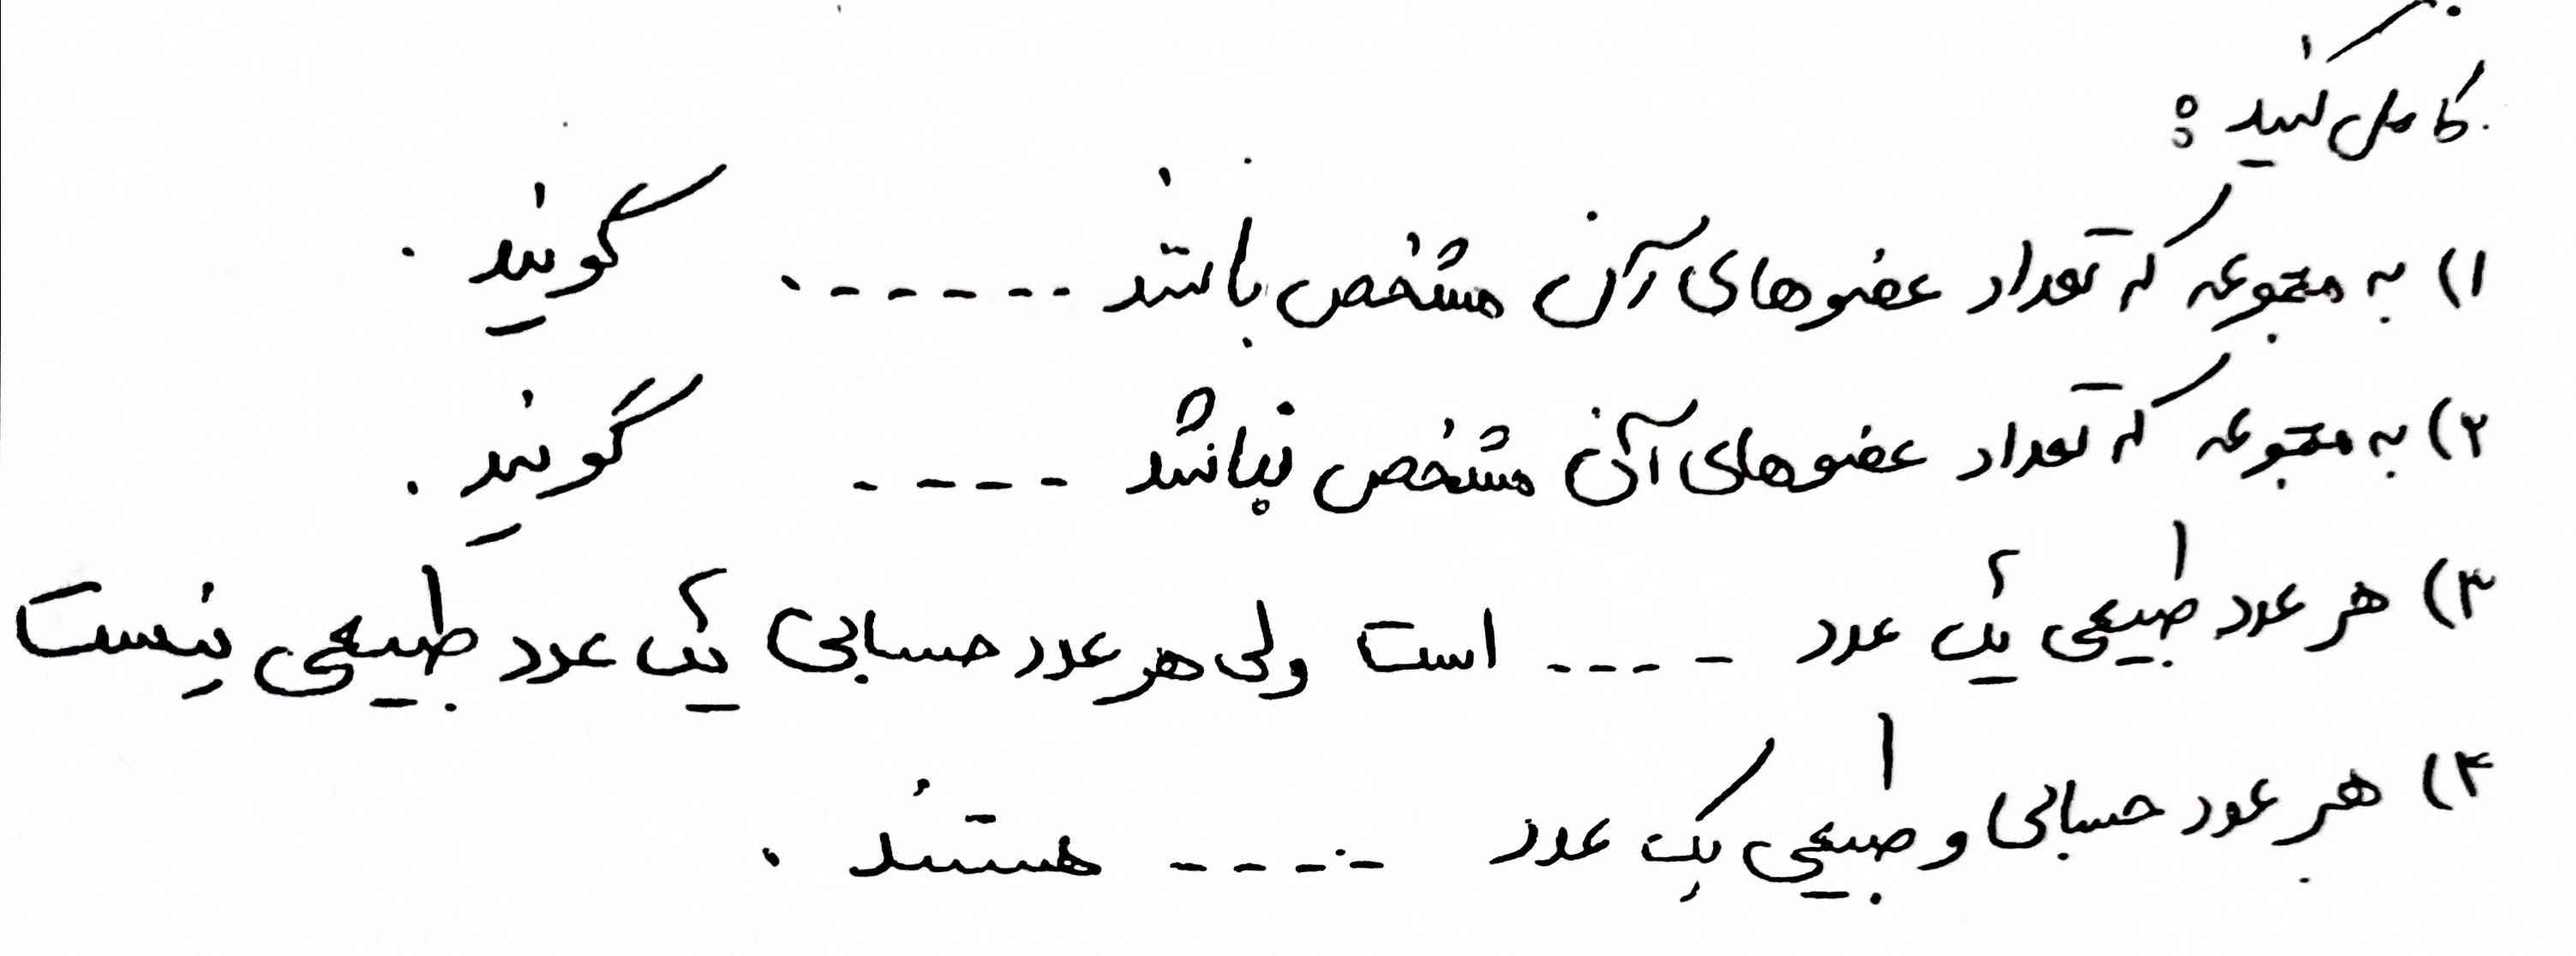 کامل کنید :
۱) به مجموعه که تعداد عضوهای آن مشخص باشند ------ گویند .
۲) به مجموعه که تعداد عضوهای آن مشخص نباشد ---- گویند .
۳) هر عدد طبیعی یک عدد ---- است ولی هر عدد حسابی یک عدد طبیعی نیست
۴) هر عدد حسابی و طبیعی یک عدد ---- هستند .